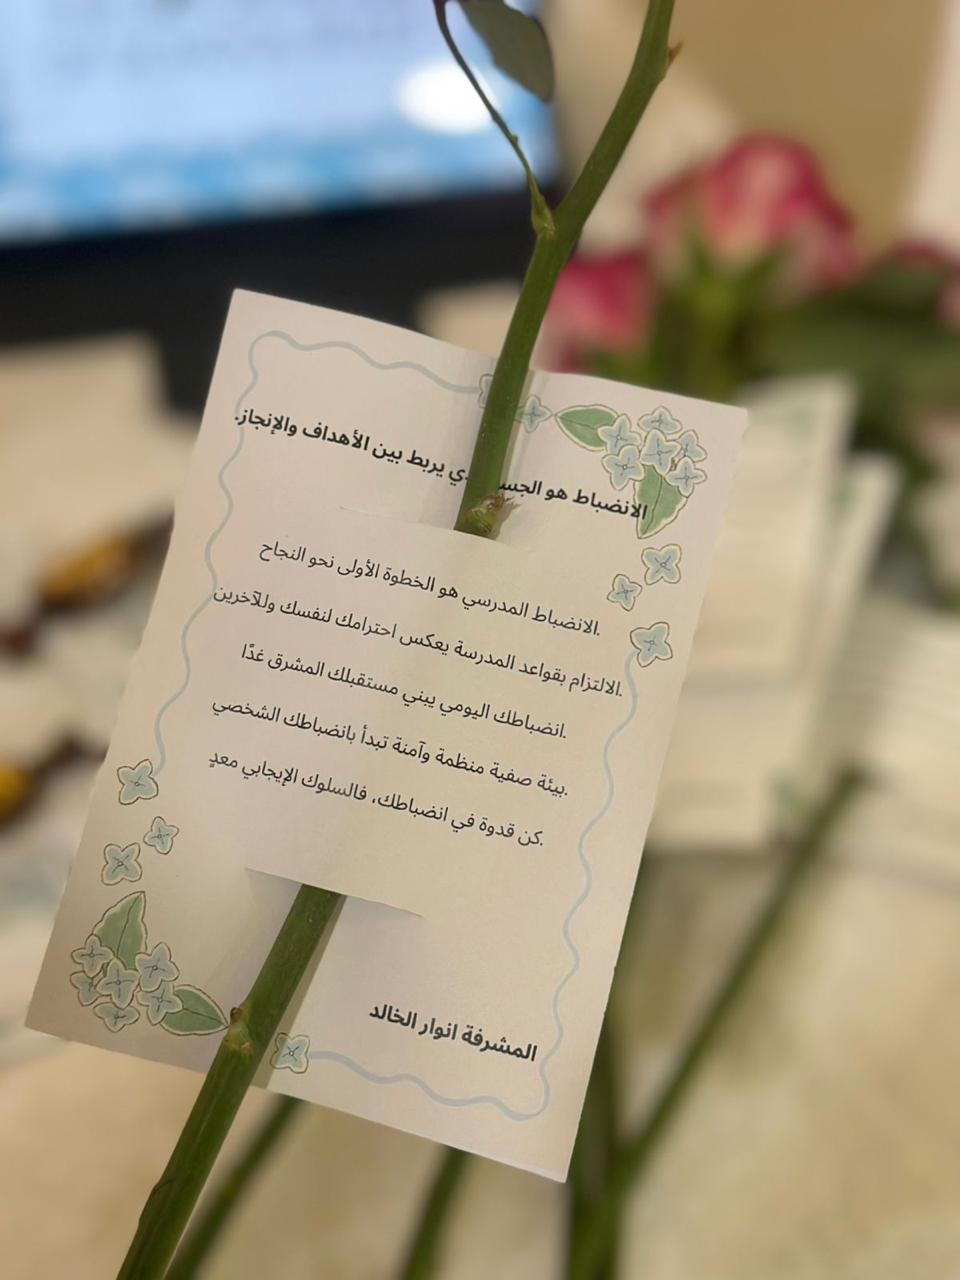 الانضباط هو الجس ـذي يربط بين الأهداف والإنجاز.
.الانضباط المدرسي هو الخطوة الأولى نحو النجاح
.الالتزام بقواعد المدرسة يعكس احترامك لنفسك وللآخرين
.انضباطك اليومي يبني مستقبلك المشرق غدًا
.بيئة صفية منظمة وآمنة تبدأ بانضباطك الشخصي
.كن قدوة في انضباطك، فالسلوك الإيجابي معدٍ
المشرفة انوار الخالد